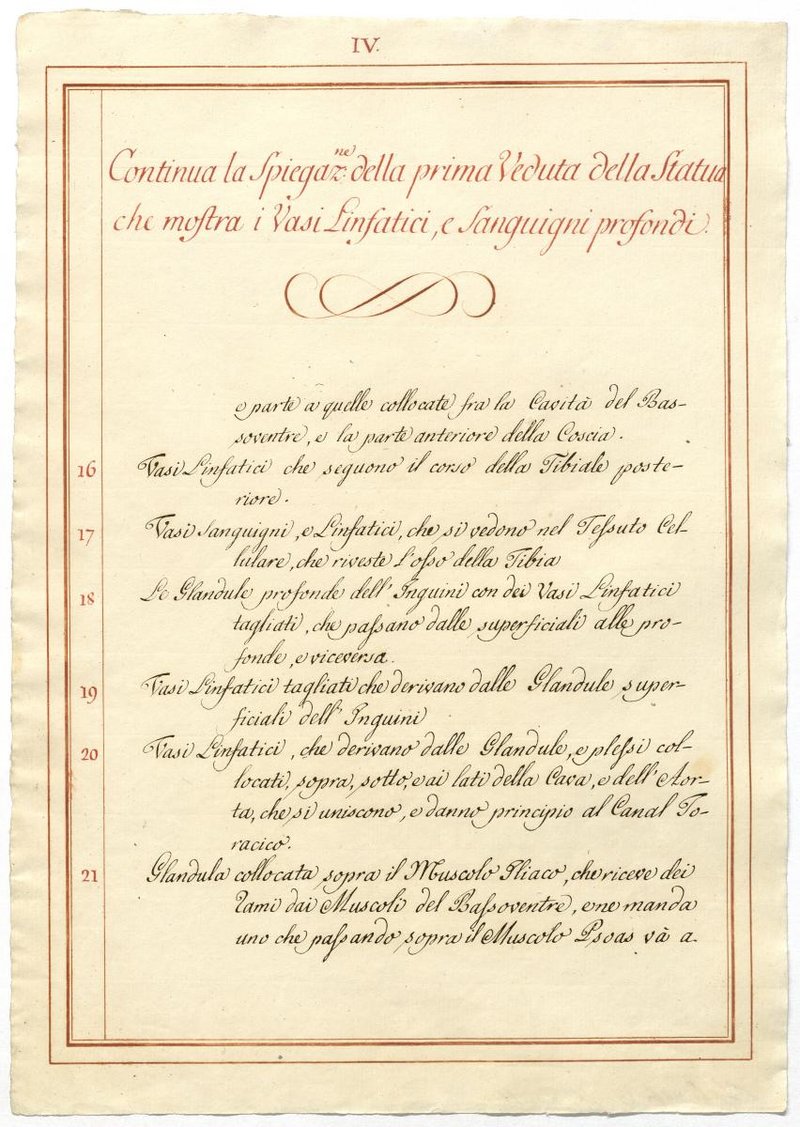 IV.
Continua la Spiegaz.ne della prima Veduta della Statua
che mostra i Vasi Linfatici, e Sanguigni profondi.
e parte a quelle collocate fra la Cavità del Bas-
soventre, e la parte anteriore della Coscia.
16 Vasi Linfatici che seguono il corso della Tibiale poste-
riore.
17 Vasi Sanguigni, e Linfatici, che si vedono nel Tessuto Cel-
lulare, che riveste l'osso della Tibia
18 Le Glandule profonde dell'Inguini con dei Vasi Linfatici
tagliati, che passano dalle superficiali alle pro-
fonde, e viceversa.
19 Vasi Linfatici tagliati che derivano dalle Glandule super-
ficiali dell'Inguini
20 Vasi Linfatici, che derivano dalle Glandule, e plessi col-
locati, sopra, sotto, e ai lati della Cava, e dell'Aor-
ta, che si uniscono, e danno principio al Canal To-
racico.
21 Glandula collocata sopra il Muscolo Iliaco, che riceve dei
Rami dai Muscoli del Bassoventre, e ne manda
uno che passando sopra il Muscolo Psoas và a